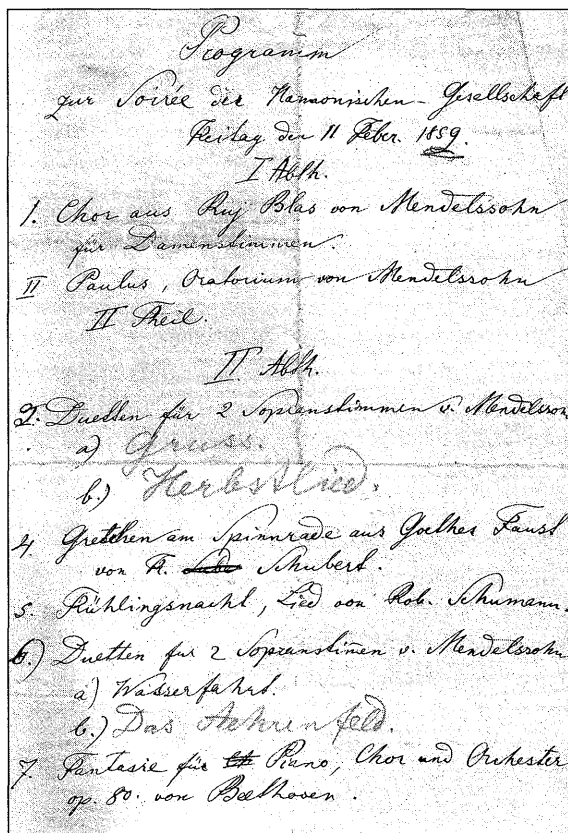 Programm
zur Soirée der Harmonischen - Gesellschaft
Freitag den 11 Feber. 1859.
I Abth.
1. Chor aus Ruy Blas von Mendelssohn
für Damenstimmen.
II Paulus, Oratorium von Mendelssohn
II Theil.
II Abth.
3. Duetten für 2 Sopranstimmen v. Mendelssohn
a) Gruss.
b.) Herbstlied.
4. Gretchen am Spinnrade aus Goethes Faust
von F. Schubert.
5. Frühlingsnacht, Lied von Rob. Schumann.
6.) Duetten fur 2 Sopranstim̄en v. Mendelssohn
a) Wasserfahrt.
b.) Das Aehrenfeld.
7. Fantasie für Piano, Chor und Orchester
op. 80. von Beethoven.